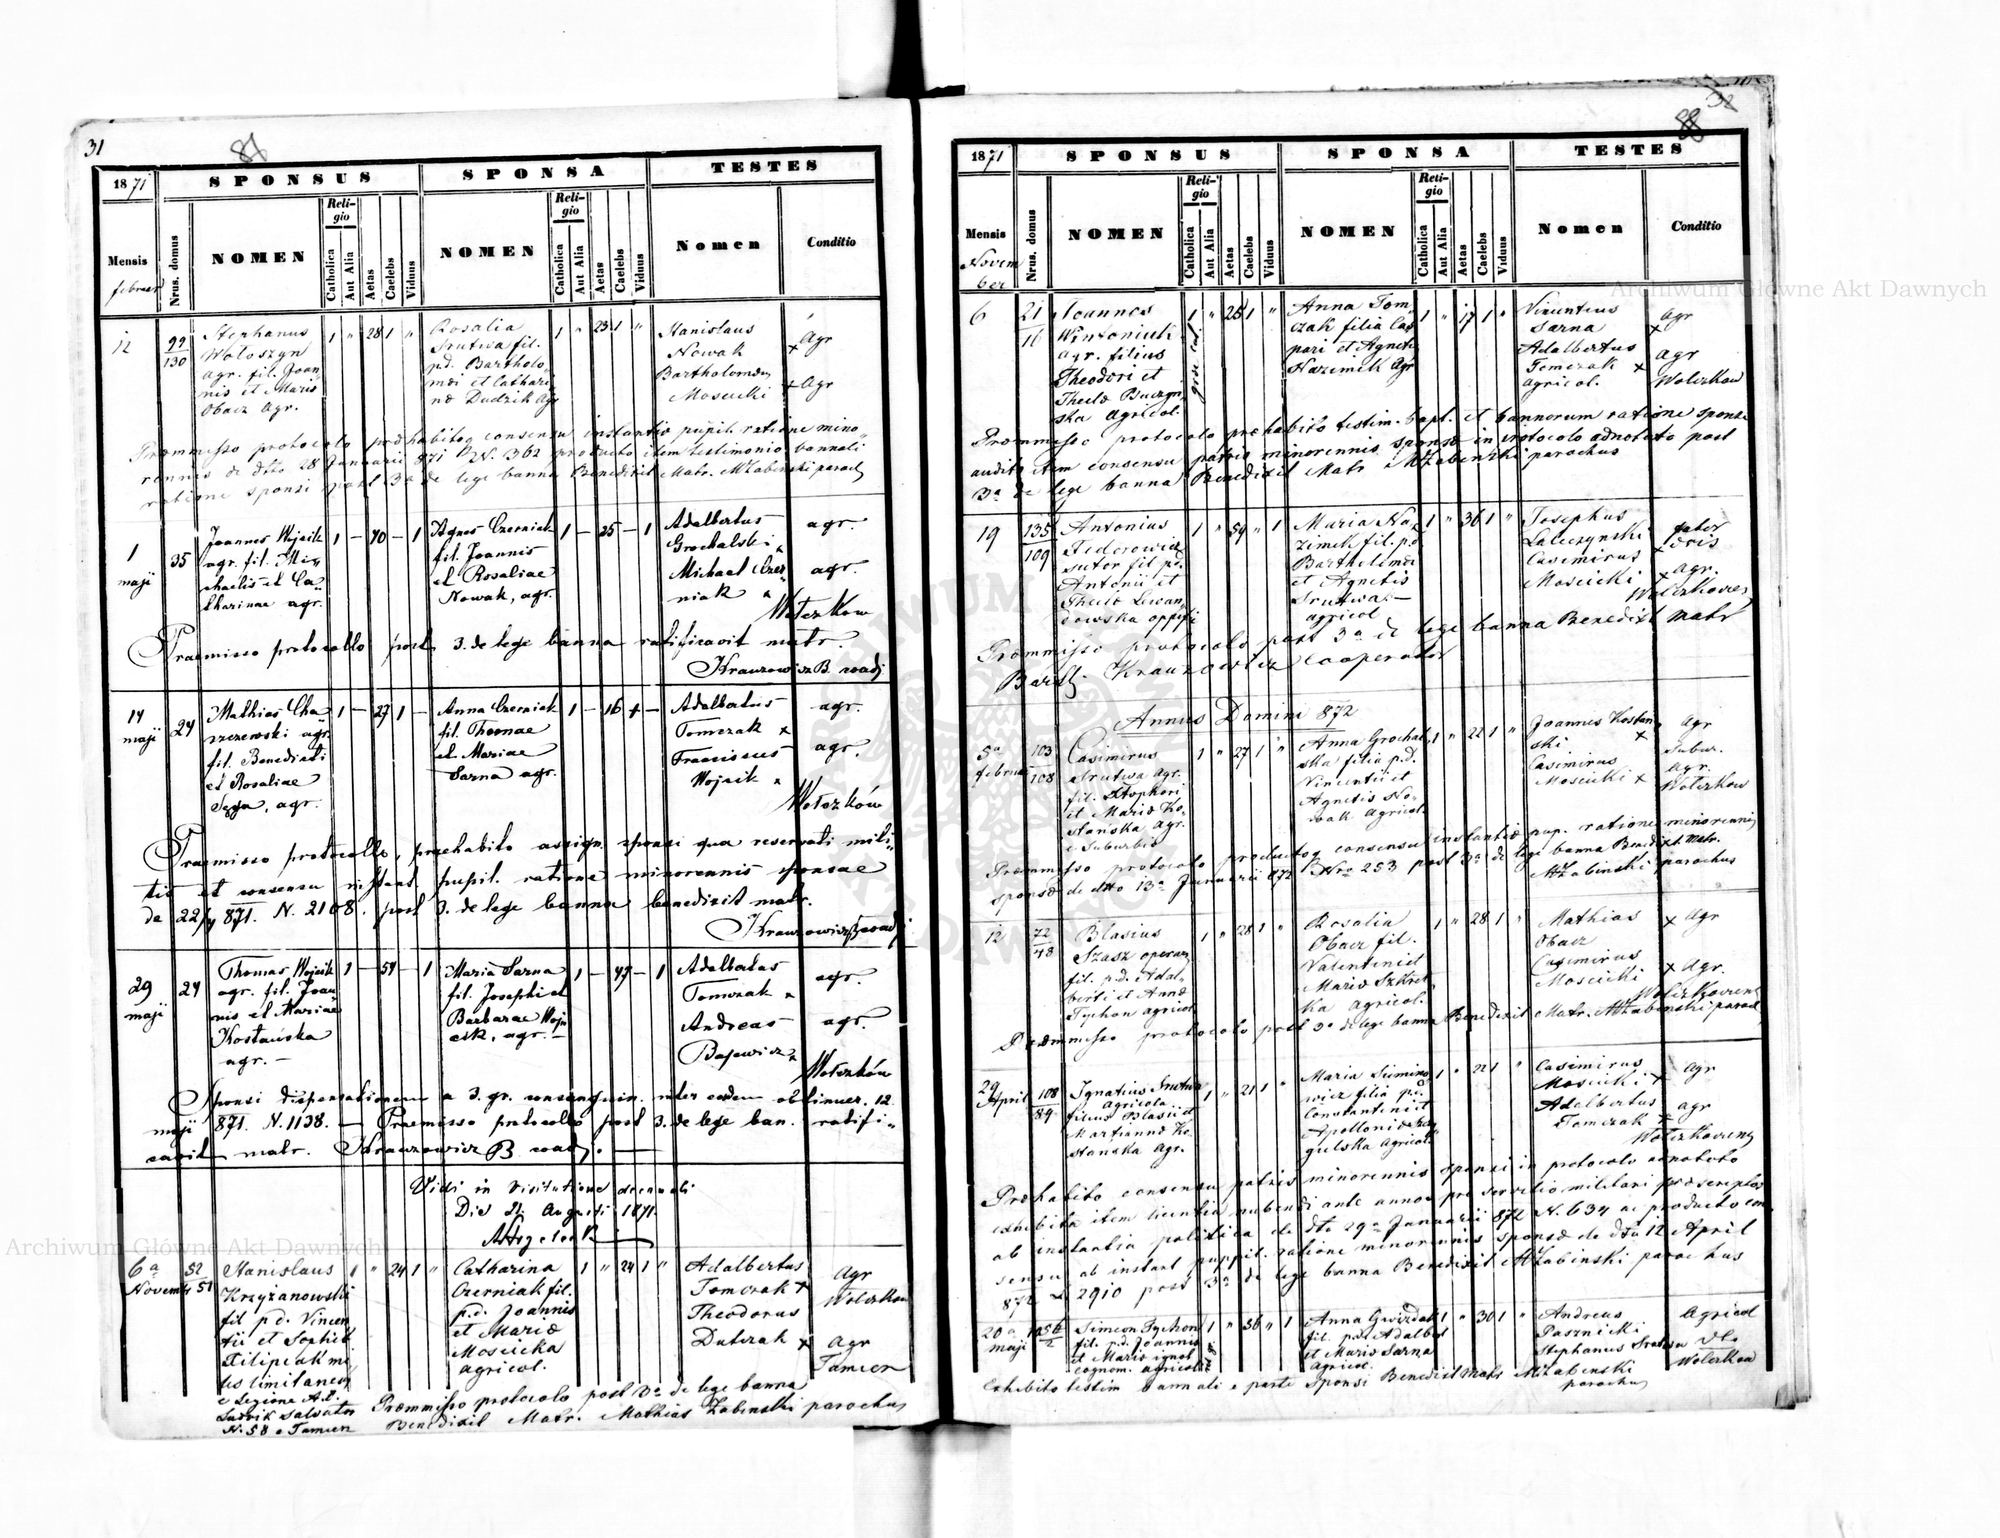 31
1871
SPONSUS
SPONSA
TESTES
Mensis
februar
Nrus. domus
NOMEN
Religio
Catholica
Aut Alia
Aetas
Caelebs
Viduus
NOMEN
Religio
Catholica
Aut Alia
Aetas
Caelebs
Viduus
Nomen
Conditio
12
99
130
Stephanus
Wołoszyn
agr. fil. Joan
nis et Mariæ
Obacz Agr.
1 " 28 1 "
Rosalia
Srutwa fil.
p.d. Bartholo
mæi et Cathari
næ Dudzik Agr
1 " 23 1 "
Stanislaus
Nowak
Bartholomæus
Moscicki
Agr
Agr
Præmmisso protocolo præhabitoq consensu instantiæ pupil. ratione mino
rennis de dtto 28 Januarii 871 N. 362 producto item testimonio bannali
ratione sponsi post 3a de lege banna Benedixit Matr. MŻabinski paroch
1
maji
35
Joannes Wojcik
agr. fil. Mi
chaelis et Ca
tharinae agr.
1 – 40 – 1
Agnes Czerniak
fil. Joannis
et Rosaliae
Nowak, agr.
1 – 35 – 1
Adalbertus
Grochalski
Michael Czer
niak
agr.
agr.
Wołczkow
Praemisso protocollo post 3. de lege banna ratificavit matr.
Krauzowicz B. coadj
14
maji
24
Mathias Cha
szczewski agr.
fil. Benedicti
et Rosaliae
agr.
1 – 27 1 –
Anna Czerniak
fil. Thomae
et Mariae
Sarna agr.
1 – 16 + –
Adalbertus
Tomczak
Franciscus
Wojcik
agr.
agr.
Wołczków
Praemisso protocollo, praehabito assign. sponsi qua reservati mili
tis et consensu pupil. ratione minorennis sponsae
de 871. N. 2108. post 3. de lege banna benedixit matr.
Krauzowicz B coadj
29
maji
24
Thomas Wojcik
agr. fil. Joan
nis et Mariae
Kostańska
agr. –
1 – 54 – 1
Maria Sarna
fil. Josephi et
Barbarae Woj
cik, agr. –
1 – 47 – 1
Adalbertus
Tomczak
Andreas
Bajewicz
agr.
agr.
Wołczków
Sponsi dispensationem a 3. gr. consanguin. inter eosdem obtinuer. 12
maji 871. N. 1138. – Praemisso protocollo post 3. de lege ban. ratifi
cavit matr. Krauzowicz B. coadj.
Vidi in Visitatione decanali
Die 21 Augusti 1871.
6a
Novembr
52
51
Stanislaus
Krzyżanowski
fil p d. Vincen
tii et Sophiæ
Filipiak mi
les limitaneus
e Legione A.D.
Ludvik Salvator
N. 58 e Tamcen
1 " 24 1 "
Catharina
Czerniak fil.
p.d. Joannis
et Mariæ
Moscicka
agricol.
1 " 24 1 "
Adalbertus
Tomczak
Theodorus
Dutczak
Agr
Wolczkow
Agr
Tamcen
Præmmisso protocolo post 3a de lege banna
Benedixit Matr. Mathias Żabinski parochus
88
1871
SPONSUS
SPONSA
TESTES
Mensis
Novem
ber
Nrus. domus
NOMEN
Religio
Catholica
Aut Alia
Aetas
Caelebs
Viduus
NOMEN
Religio
Catholica
Aut Alia
Aetas
Caelebs
Viduus
Nomen
Conditio
6
21
16
Joannes
Wintoniuk
agr. filius
Theodori et
Theclæ Buczyn
ska Agricol.
1 " 25 1 "
Anna Tom
czak filia Cas
pari et Agnetis
Nazimek Agr
1 " 17 1 "
Vincentius
Sarna
Adalbertus
Tomczak
agricol.
Agr
Agr
Wolczkow
Præmmisso protocolo præhabito testim. bapt. et bannorum ratione sponsi
audito item consensu patris minorennis sponsæ in protocolo adnotato post
3a de lege banna Benedixit Matr MŻabinski parochus
19
135
109
Antonius
Fedorowicz
sutor fil p.d.
Antonii et
Theclæ Lewan
dowska oppifi
1 " 59 " 1
Maria Na
zimek fil. p.d.
Bartholomæi
et Agnetis
Srutwa –
agricol
1 " 36 1 "
Josephus
Laleczynski
Casimirus
Moscicki
agr.
Wolczkovien
Præmmisso protocolo post 3a de lege banna Benedixit Matr
Barth. Krauzowicz Cooperator
Annus Domini 872
5a
februar
103
108
Casimirus
Srutwa agr.
fil. Stephani
et Mariæ Ko
stanska agr.
e Suburbio
1 " 27 1 "
Anna Grochal
ska filia p.d.
Vincentii et
Agnetis No
wak Agricol.
1 " 22 1 "
Joannes Kostan
ski
Casimirus
Moscicki
Agr
Subur.
Agr.
Wolczkow
Præmmisso protocolo productoq consensu instantiæ pup. ratione minorennis
sponsæ de dtto 13a Januarii 872 Nro 253 post 3a de lege banna Benedixit Matr.
MŻabinski parochus
12
72
48
Blasius
Szasz operar
fil. p.d. Adal
berti et Annæ
Tychon agricol
1 " 28 1 "
Rosalia
Obacz fil.
Valentini et
Mariæ Szkret
ka agricol.
1 " 28 1 "
Mathias
Obacz
Casimirus
Moscicki
Agr
Agr.
Wolczkovien
Præmmisso protocolo post 3a de lege banna Benedixit Matr. MŻabinski paroch
29
April
108
89
Ignatius Srutwa
agricola
filius Blasii et
Mariannæ Ko
stanska Agr.
1 " 21 1 "
Maria Simino
wicz filia p.d.
Constantini et
Apolloniæ
gulska Agricol.
1 " 22 1 "
Casimirus
Moscicki
Adalbertus
Tomczak
Agr
Agr
Wolczkovien
Præhabito consensu patris minorennis sponsi in protocolo adnotato
exhibita item licentia nubendi ante annos pro servitio militari præscriptos
ab instantia politica de dto 29a Januarii 872 N. 634 ac producto con
sensu ab instant puppil. ratione minorennis sponsæ de dto 12 April
872 N 2910 post 3a de lege banna Benedixit MŻabinski parochus
20a
maji
Simeon Tychon
fil. p.d. Joannis
et Mariæ ignot
cognom. agricol
1 " 56 " 1
Anna Gwizdak
fil. p.d. Adalber
et Mariæ Sarna
Agricol.
1 " 30 1 "
Andreas
Pasznicki
Stephanus Srutwa
Agricol
Wolczkow
Exhibito testim bannali e parte sponsi Benedixit Matr MŻabinski
parochus
Archiwum Główne Akt Dawnych
Archiwum Główne Akt Dawnych